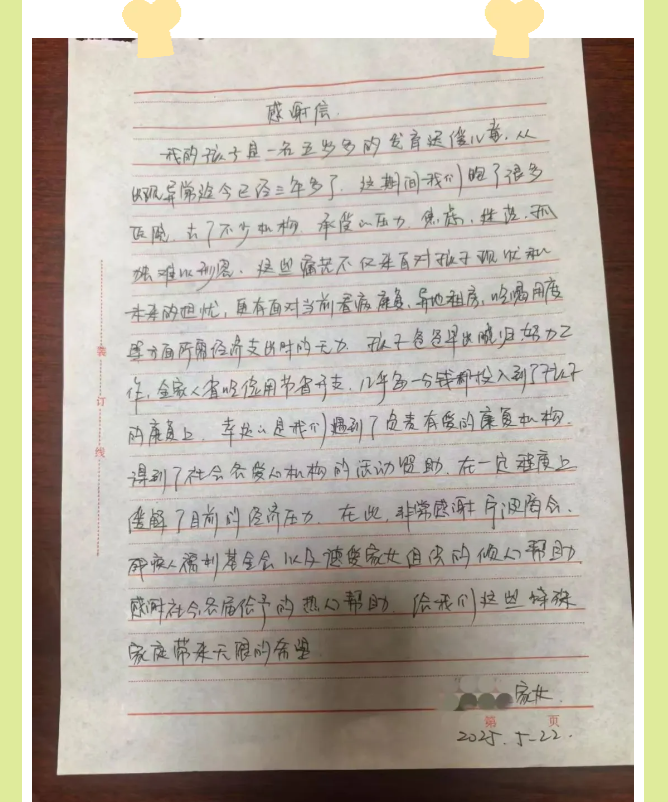 感谢信
我的孩子是一名五岁多的发育迟缓儿童,从
出现异常迄今已经三年多了,这期间我们跑了很多
医院,去了不少机构,承受的压力、焦虑、迷茫、孤
独难以形容,这些痛苦不仅来自对孩子现状和
未来的担忧,更有面对当前看病康复、异地租房、吃喝用度
等方面所需经济支出时的无力。孩子爸爸早出晚归努力工
作,全家人省吃俭用节省开支,几乎每一分钱都投入到了孩子
的康复上。幸运的是我们遇到了负责有爱的康复机构,
得到了社会各爱心机构的活动资助,在一定程度上
缓解了目前的经济压力。在此,非常感谢
残疾人福利基金会以及
感谢社会各届给予的热心帮助,给我们这些特殊
家庭带来无限的希望。
家长
2025.5.22.
第 页
装
订
线